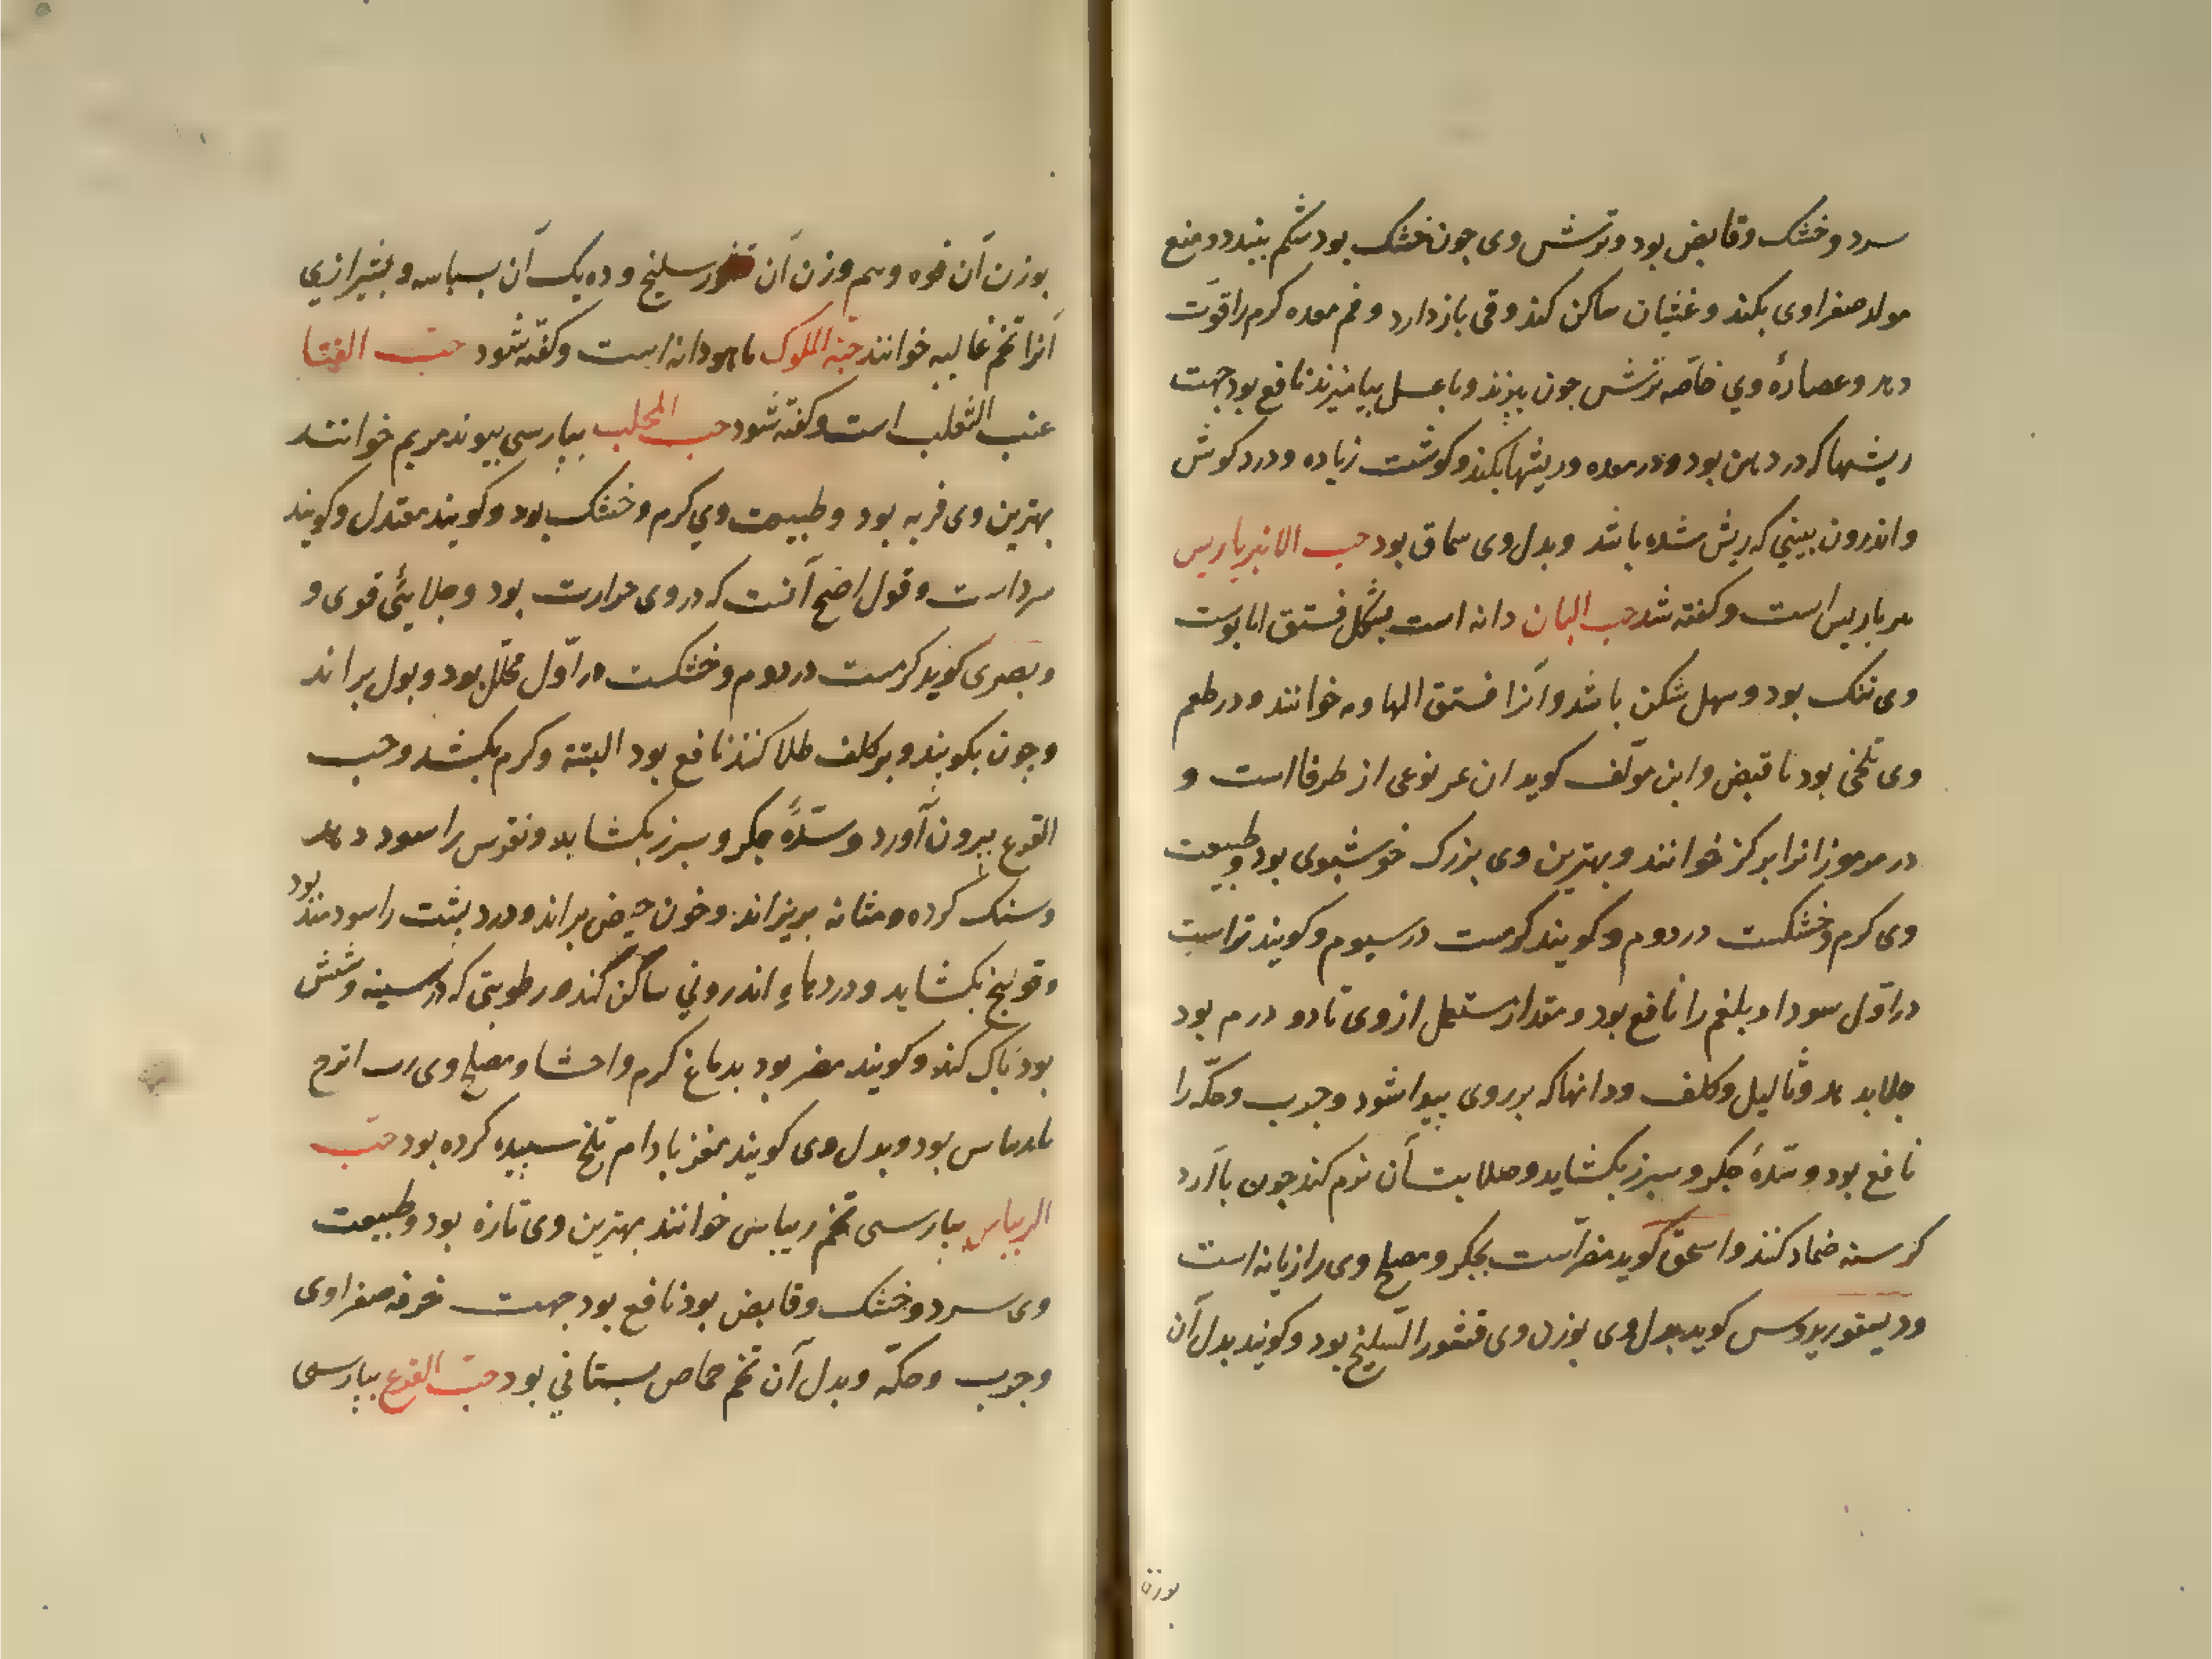 سرد و خشک و قابض بود و ترشش وی جون خشک بود شکم ببندد و منع
مولد صفراوی بکند و غثیان ساکن کند و قی بازدارد و فم معده کرم را قوّت
دهد و عصارهٔ وی خاصّه ترشش جون ببزند و با عسل بیامیزند نافع بود جهت
ریشها که در دهن بود و در معده و ریشها بکند و کوشت زیاده و درد کوش
و اندرون بینی که ریش شده باشد و بدل وی سماق بود حب الانبرباریس
برباریس است و کفته شد حب البان دانه است بشکل فستق اما بوست
وی تنک بود و سهل شکن باشد و آنرا فستق الهاویه خوانند و در طعم
وی تلخی بود با قبض و ابن مؤلف کوید ان عر نوعی از طرفا است و
در مرموز انرا بر کز خوانند و بهترین وی بزرک خوشبوی بود و طبیعت
وی کرم و خشکست در دوم و کویند کرمست در سیوم و کویند تر است
در اوّل سودا و بلغم را نافع بود و مقدار مستعمل از وی تا دو درم بود
جلا بدهد و ثالیل و کلف و دانها که بر روی بیدا شود و جرب و حکّه را
نافع بود و سدّهٔ جکر و سبرز بکشاید و صلابت آن نرم کند جون با آرد
کرسنه ضماد کنند و اسحق کوید مضرّ است بجکر و مصلح وی رازیانه است
و دیسقوریدوس کوید بدل وی بوزن وی قشور السّلیخ بود و کویند بدل آن
بوزن
بوزن آن فوه و هم وزن آن قشور سلیخ و ده یک آن بسباسه و بشیرازی
آنرا تخم غالیه خوانند حبّه الملوک ماهودانه است و کفته شود حبّ الفنا
عنب الثعلب است و کفته شود حب المحلب ببارسی بیوند مریم خوانند
بهترین وی فربه بود و طبیعت وی کرم و خشک بود و کویند معتدل و کویند
سرد است و قول اصح آنست که در وی حرارت بود و جلایئی قوی و
و بصری کوید کرمست در دوم و خشکست در اوّل محلّل بود و بول براند
و جون بکویند و بر کلف طلا کنند نافع بود البته و کرم بکشد و حب
القرع بیرون آورد و سدّهٔ جکر و سبرز بکشاید و نقرس را سود دهد
و سنک کرده و مثانه بریزاند و خون حیض براند و درد بشت را سودمند بود
و قولنج بکشاید و دردهاء اندرونی ساکن کند و رطوبتی که در سینه و شش
بود باک کند و کویند مضر بود بدماغ کرم و احشا و مصلح وی رب اترج
بود و بدل وی کویند مغز بادام تلخ سبیده کرده بود حبّ
الریباس ببارسی تخم ریباس خوانند بهترین وی تازه بود و طبیعت
وی سرد و خشک و قابض بود نافع بود جهت غرفه صفراوی
و جرب و حکّه و بدل آن تخم حماض بستانی بود حبّ القرع ببارسی